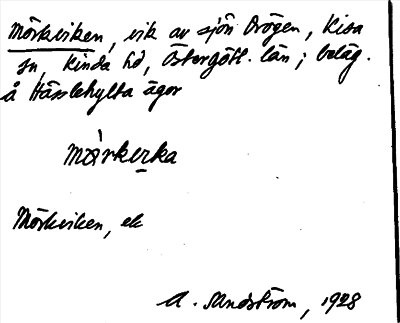 Mörkviken, vik av sjön Drögen, Kisa
sn, Kinda hd, Östergötl. län; beläg.
å Hässlehylta ägor
Mörkviken, ek
A. Sandström, 1928